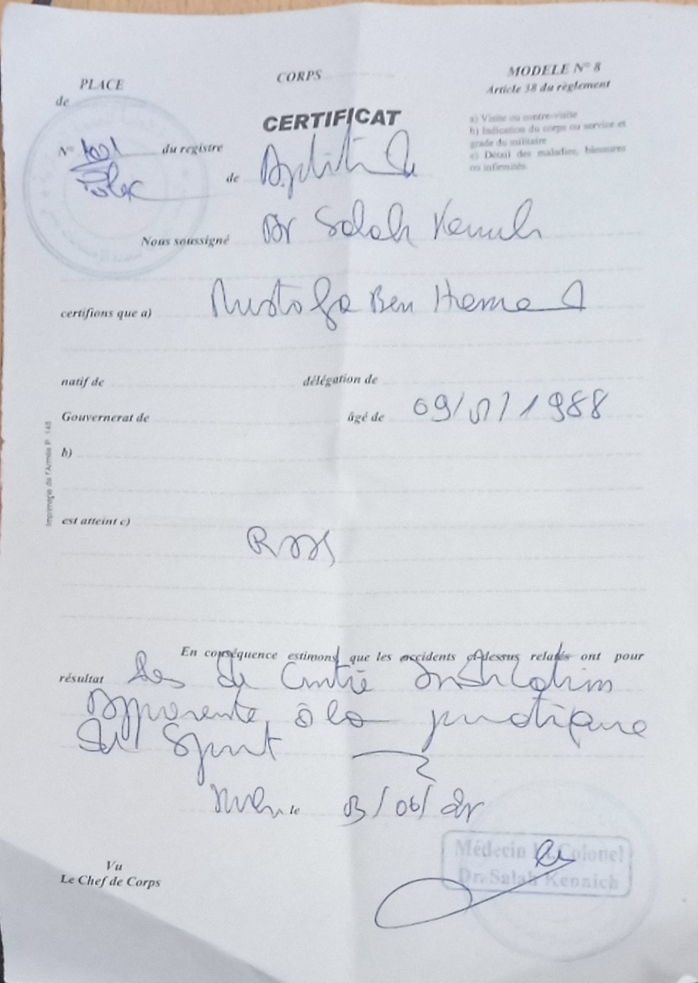 PLACE CORPS MODELE N° 8
de Article 38 du règlement
CERTIFICAT
a) Visite ou contre-visite
b) Indication du corps ou service et
grade du militaire
c) Détail des maladies, blessures
ou infirmités
N° du registre
de Aptitude
Nous soussigné Dr Salah Kennich
certifions que a) Mustafa Ben Hemed
natif de délégation de
Gouvernerat de âgé de 1988
b)
Imprimerie de l'Armée P. 148
est atteint c)
RAS
En conséquence estimons que les accidents ci-dessus relatés ont pour
résultat Pas de Contre indication
apparente à la pratique
du sport
le /06/
Médecin Lt Colonel
Dr. Salah Kennich
Vu
Le Chef de Corps